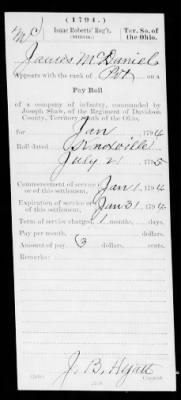 (1794.)
Mc | Isaac Roberts' Reg't. | Ter. So. of
(MILITIA.) | the Ohio.
James McDaniel
Appears with the rank of Pvt on a
Pay Roll
of a company of infantry, commanded by
Joseph Shaw, of the Regiment of Davidson
County, Territory South of the Ohio,
for Jan, 1794
Roll dated Knoxville
July 2, 1795
Commencement of service Jan 1, 1794
of this settlement,
Expiration of service Jan 31, 1794
of this settlement,
Term of service charged, 1 months, days.
Pay per month, dollars.
Amount of pay, 3 dollars, cents.
Remarks:
J. B. Hyatt
Copyist.